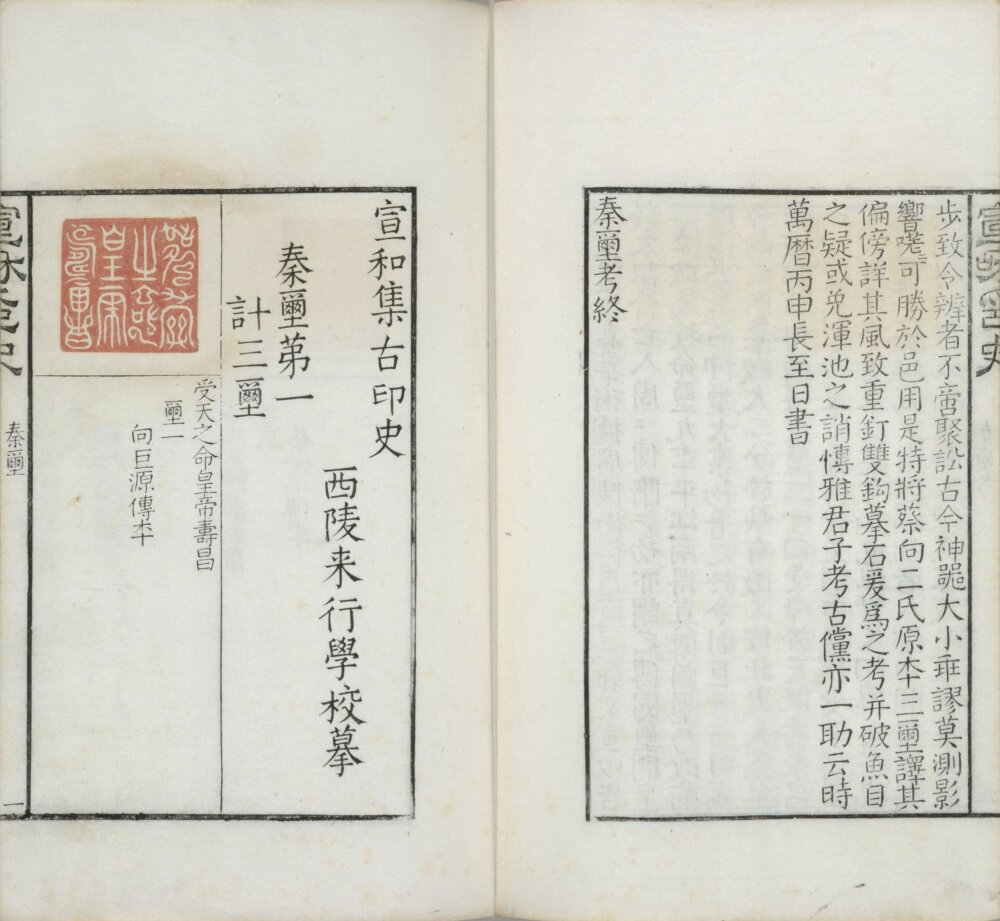 步致令辨者不啻聚訟古今神噐大小乖謬莫測影
響嗟可勝於邑用是特將蔡向二氏原本三璽譯其
偏傍詳其風致重釘雙鈎摹石爰爲之考并破魚目
之疑或免渾池之誚愽雅君子考古儻亦一助云時
萬曆丙申長至日書
秦璽考終
宣和集古印史
西陵来行學校摹
秦璽苐一
計三璽
受天之命皇帝壽昌
璽一
向巨源傳本
秦璽
一